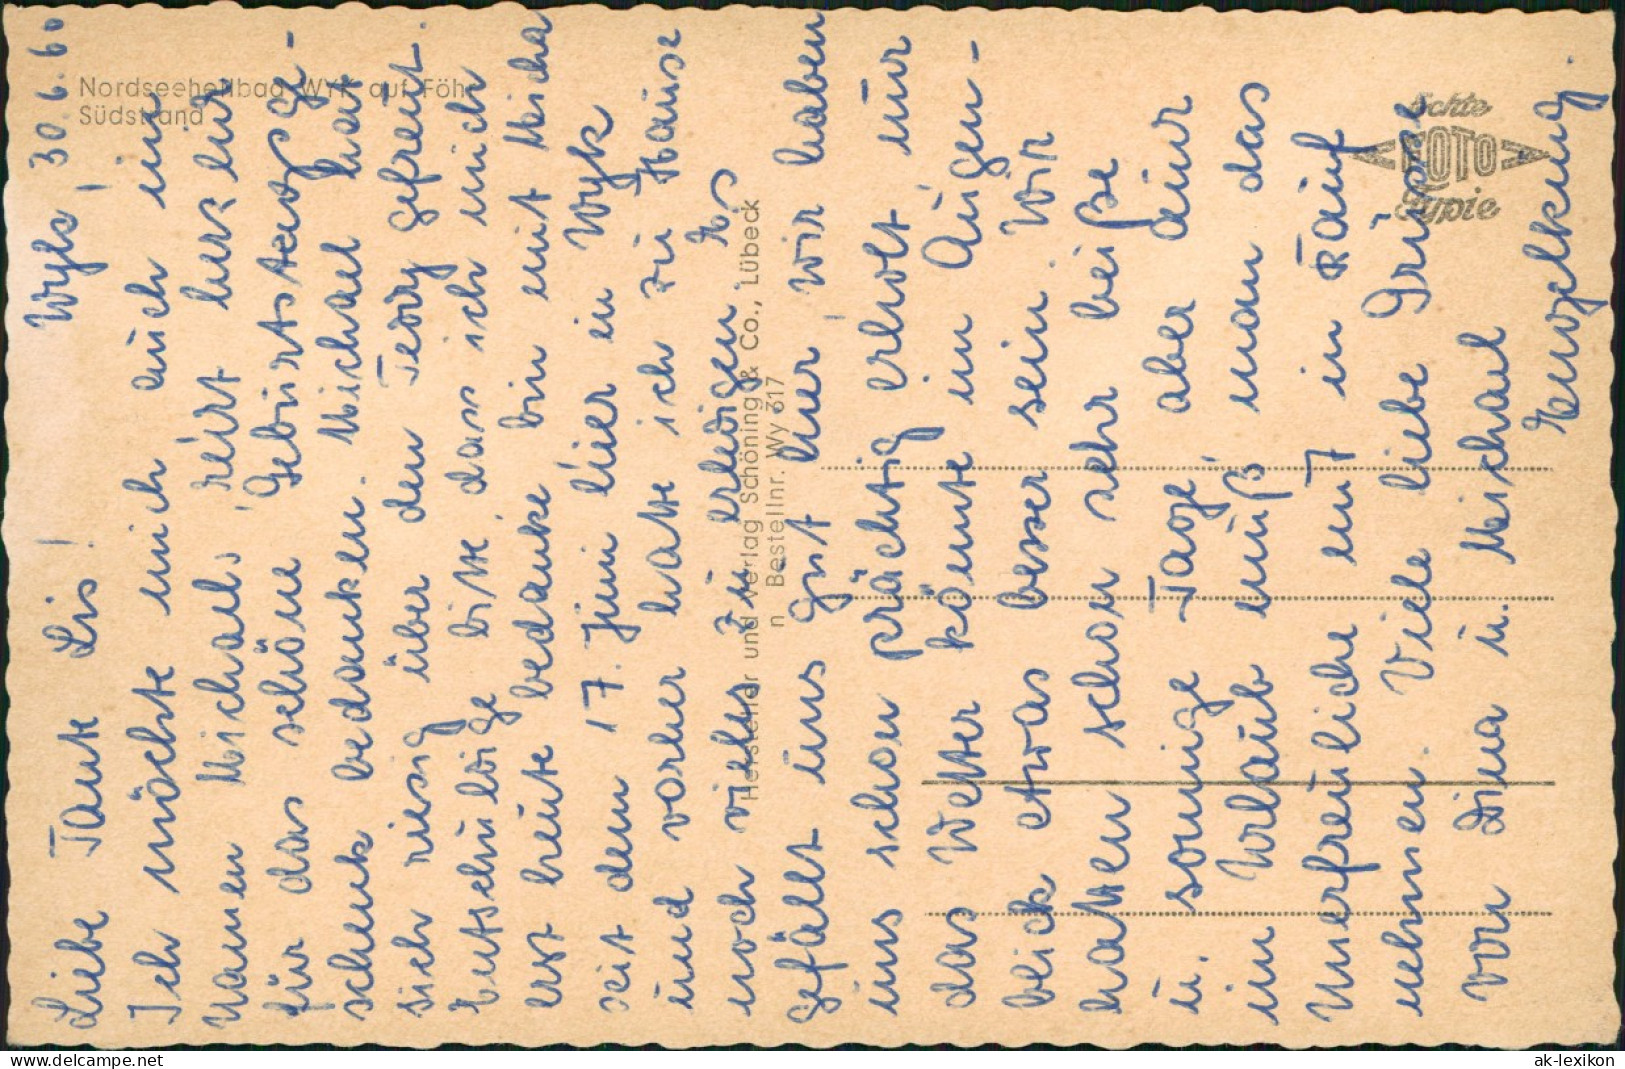 Wyk, 30.6.60
Liebe Tante Lis!
Ich möchte mich auch im
Namen Michaels, recht herzlich
für das schöne Geburtstagsge-
schenk bedanken. Michael hat
sich riesig über den Teddy gefreut.
Entschuldige bitte, dass ich mich
erst heute bedanke, bin mit Micha
seit dem 17. Juni hier in Wyk
und vorher hatte ich zu Hause
noch vieles zu erledigen. Es
gefällt uns gut hier, wir haben
uns schon prächtig erholt, nur
das Wetter könnte im Augen-
blick etwas besser sein. Wir
hatten schon sehr heiße
u. sonnige Tage, aber einer
im Urlaub muß man das
Unerfreuliche mit in Kauf
nehmen. Viele liebe Grüsse
von Dina u. Michael
Engelking.
Nordseeheilbad WYK auf Föhr
Südstrand
Echte
FOTO
Typie
Hersteller und Verlag Schöning & Co., Lübeck
n Bestellnr. Wy 317
delcampe.net
ak-lexikon